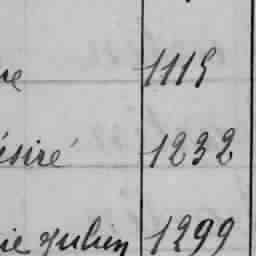 re 1115
ésiré 1232
rie Julien 1299